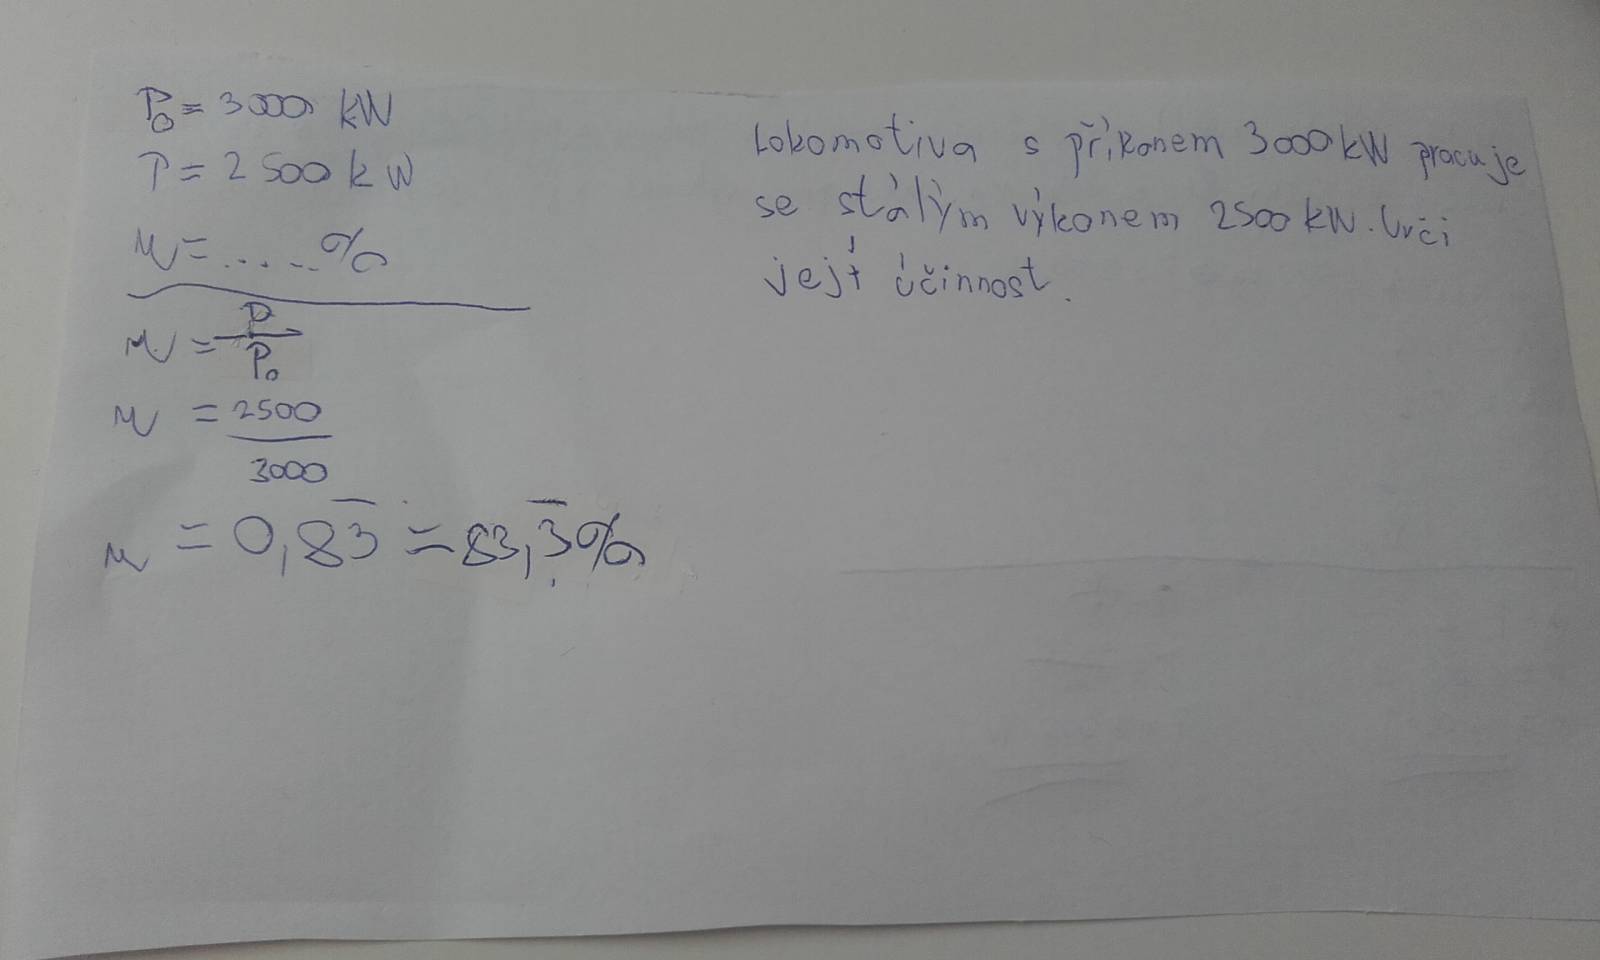 P₀ = 3000 kW
P = 2 500 kW
η = ..... %
η = P/P₀
η = 2500
3000
η = 0,83̅ = 83,3̅%
Lokomotiva s příkonem 3000 kW pracuje
se stálým výkonem 2500 kW. Urči
její účinnost.